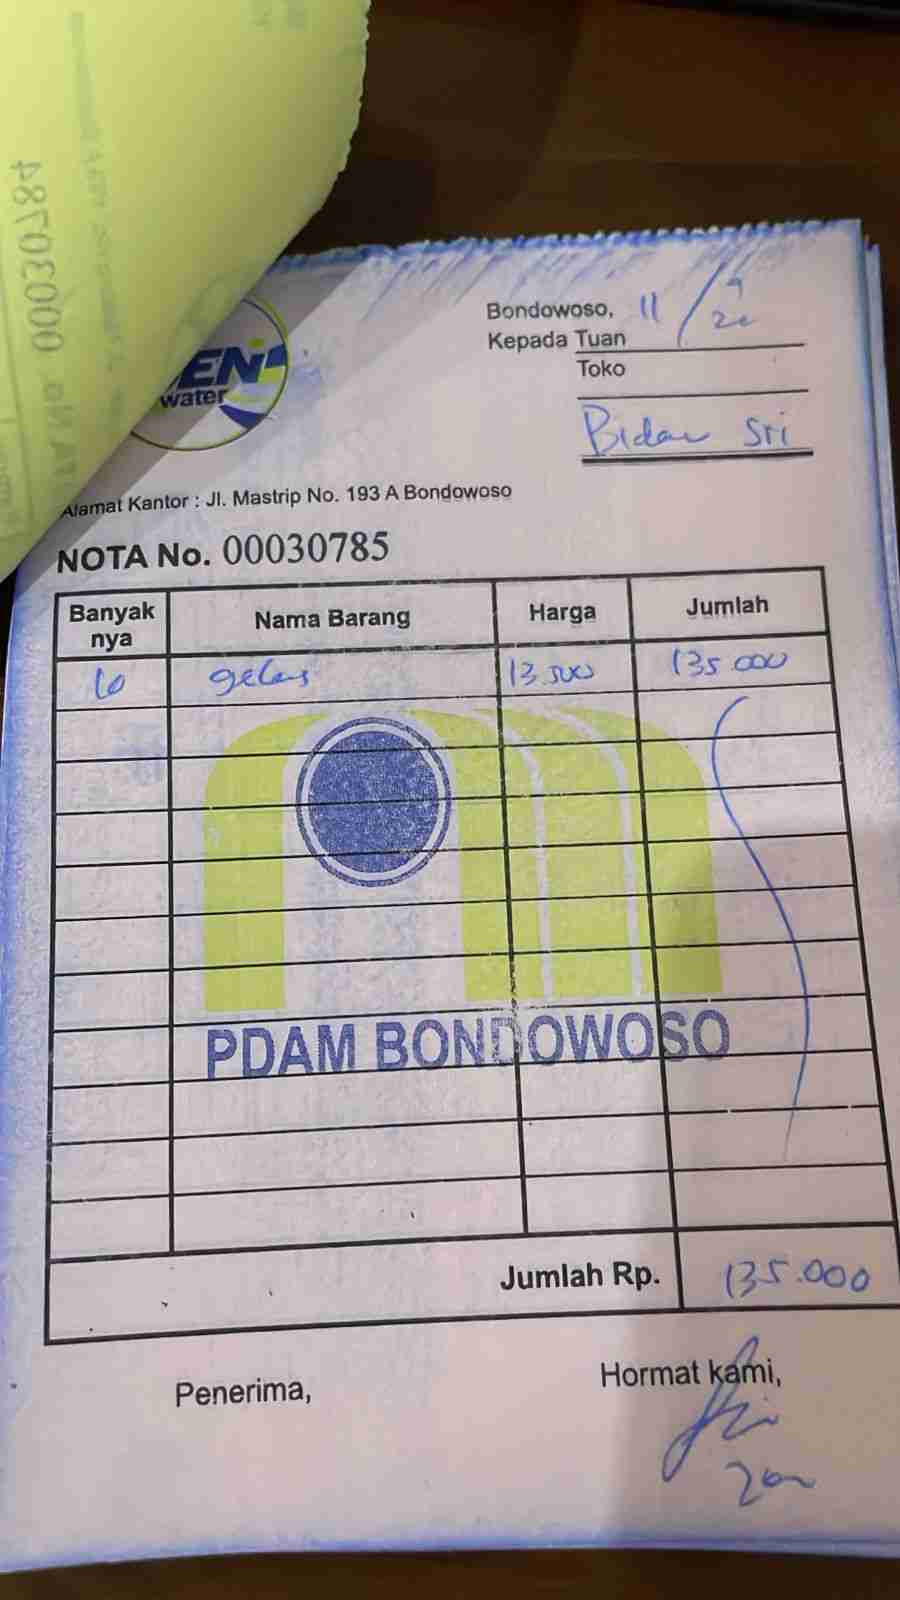 00030784
EN
water
Bondowoso, 11/9
Kepada Tuan
Toko
Bidan Sri
Alamat Kantor : Jl. Mastrip No. 193 A Bondowoso
NOTA No. 00030785
Banyak nya Nama Barang Harga Jumlah
10 gelas 13.500 135.000
PDAM BONDOWOSO
Jumlah Rp. 135.000
Penerima, Hormat kami,